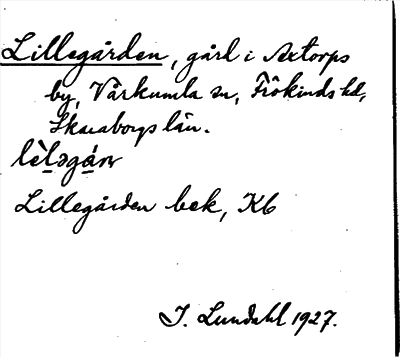 Lillegården, gård i Axtorps
by, Vårkumla sn, Frökinds hd,
Skaraborgs län.
Lillegården bek, Kb
I. Lundahl 1927.